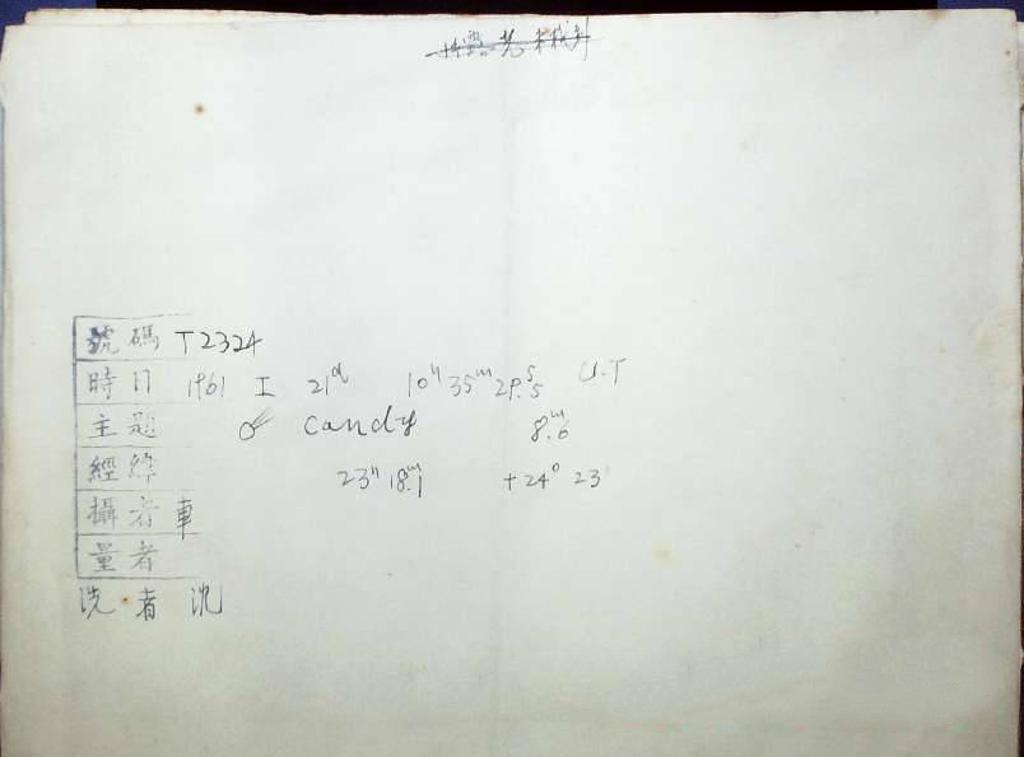 號碼 T2324
時日 1961 I 21d 10h 35m 29s.5 U.T
主題 ☄ Candy 8m.6
經緯 23h 18m.1 +24° 23
攝者 車
量者
洗者 沈